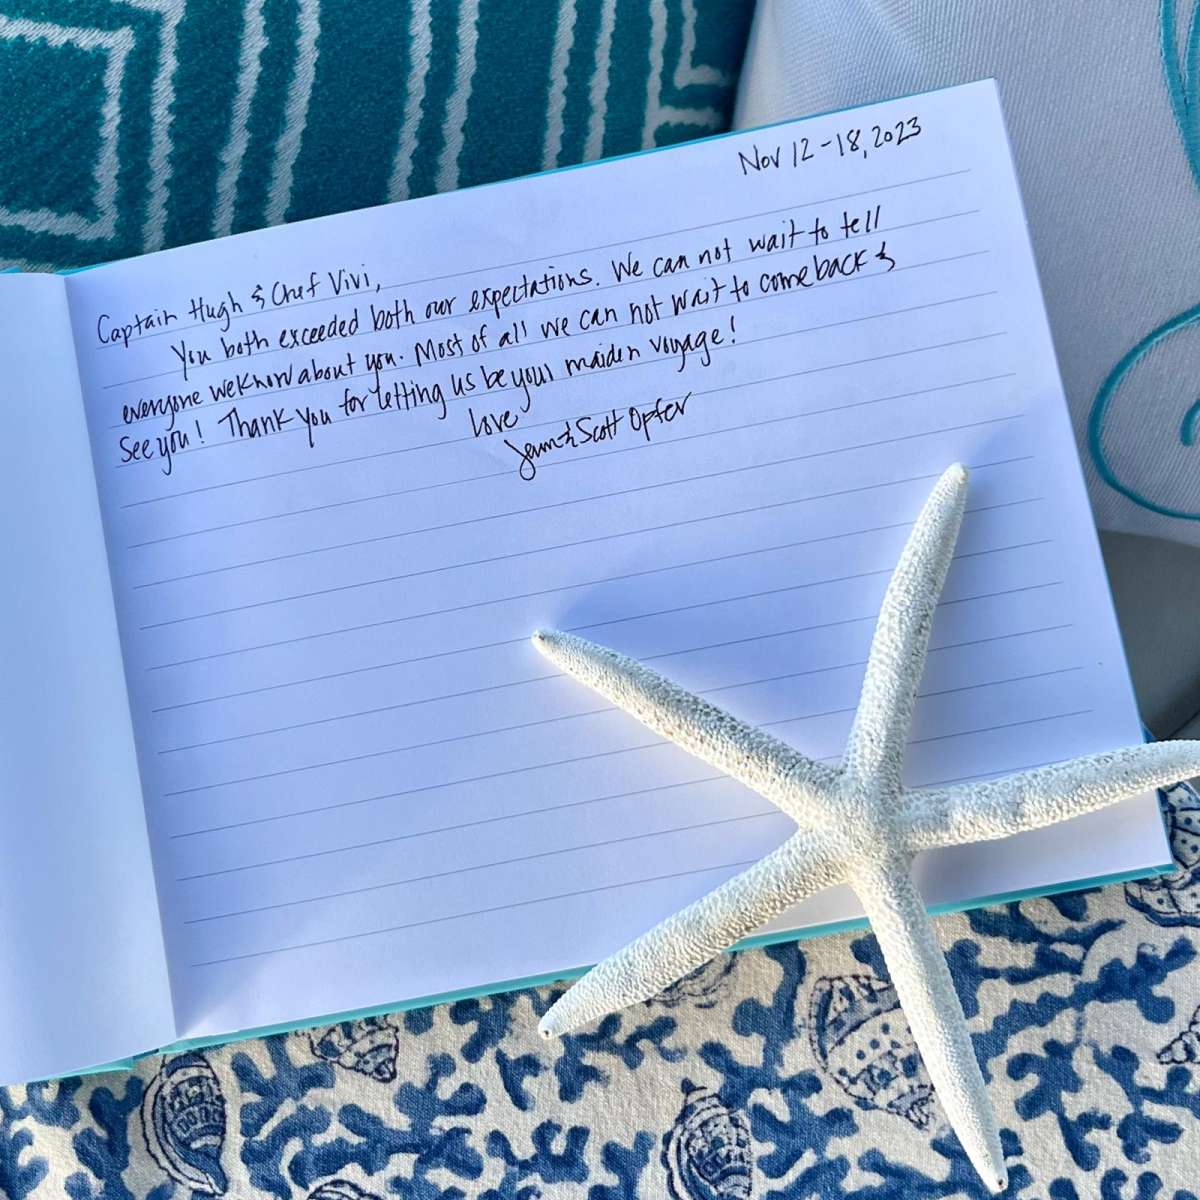 Nov 12-18, 2023
Captain Hugh & Chef Vivi,
You both exceeded both our expectations. We can not wait to tell
everyone we know about you. Most of all we can not wait to come back &
see you! Thank you for letting us be your maiden voyage!
Love
Jenn & Scott Opfer